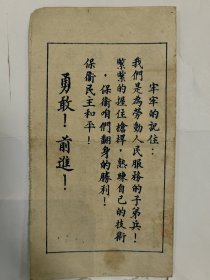 牢牢的記住：
我們是為勞動人民服務的子弟兵！
緊緊的握住搶捍，熟練自己的技術
，保衛咱們翻身的勝利！
保衛民主和平！
勇敢！前進！